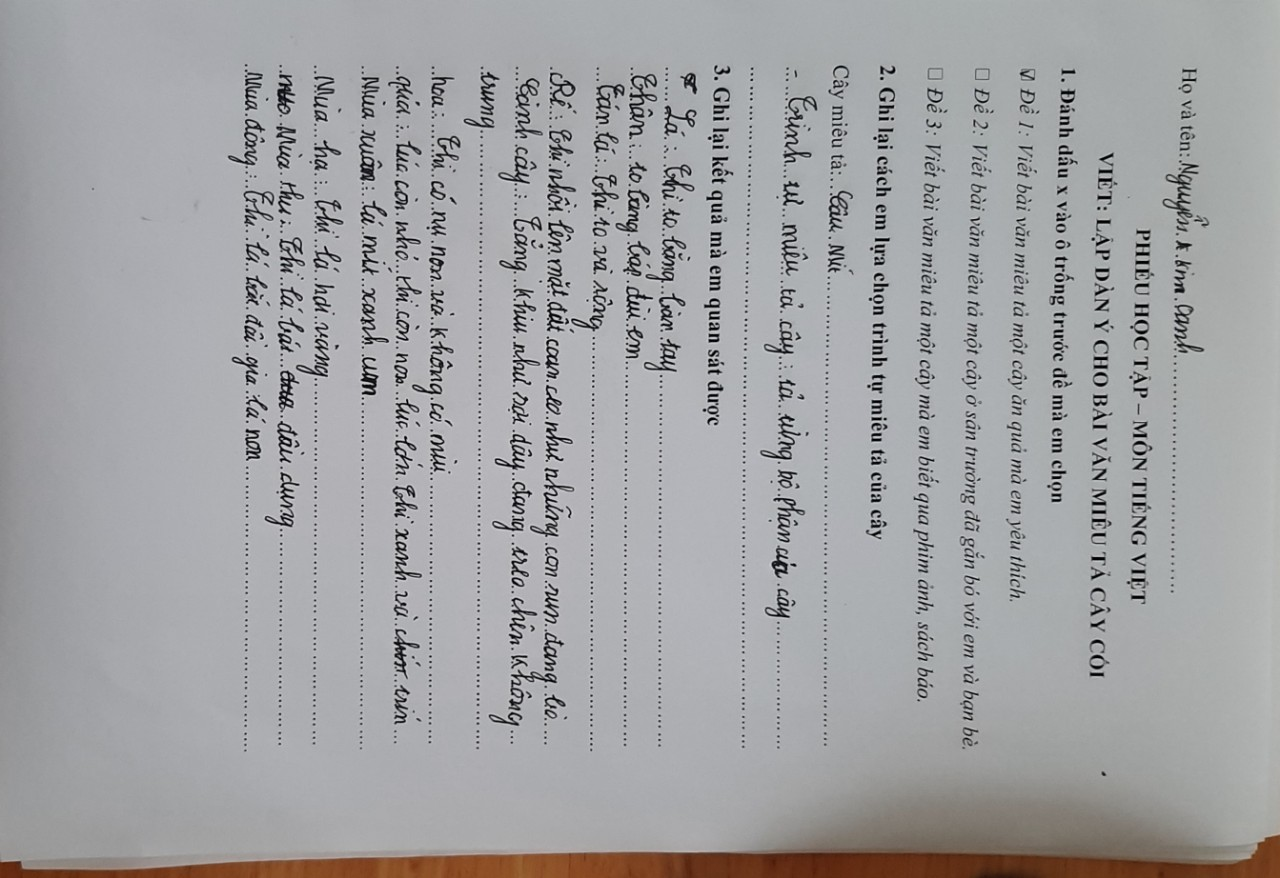 Họ và tên: Nguyễn k kim Oanh
PHIẾU HỌC TẬP – MÔN TIẾNG VIỆT
VIẾT: LẬP DÀN Ý CHO BÀI VĂN MIÊU TẢ CÂY CỐI
1. Đánh dấu x vào ô trống trước đề mà em chọn
☑ Đề 1: Viết bài văn miêu tả một cây ăn quả mà em yêu thích.
☐ Đề 2: Viết bài văn miêu tả một cây ở sân trường đã gắn bó với em và bạn bè.
☐ Đề 3: Viết bài văn miêu tả một cây mà em biết qua phim ảnh, sách báo.
2. Ghi lại cách em lựa chọn trình tự miêu tả của cây
Cây miêu tả: Cây Mít
- Trình tự miêu tả cây: tả từng bộ phận của cây
3. Ghi lại kết quả mà em quan sát được
Lá: thì to bằng bàn tay
thân: to bằng bắp đùi em
tán lá: thì to và rộng
Rễ: thì nhôi lên mặt đất ngoan cèo như những con run đang bò
Cành cây: tẳng khiu như sợi dây đang treo chên không
trung
hoa: thì có nụ non và không có mùi
quả: lúc còn nhỏ thì còn non lúc lớn thì xanh và chín
Mùa xuân: lá mít xanh um
Mùa hạ: thì lá hơi vàng
Mùa thu: thì lá bắt đầu dụng
Mùa đông: thì lá bắt đầu gia lá non